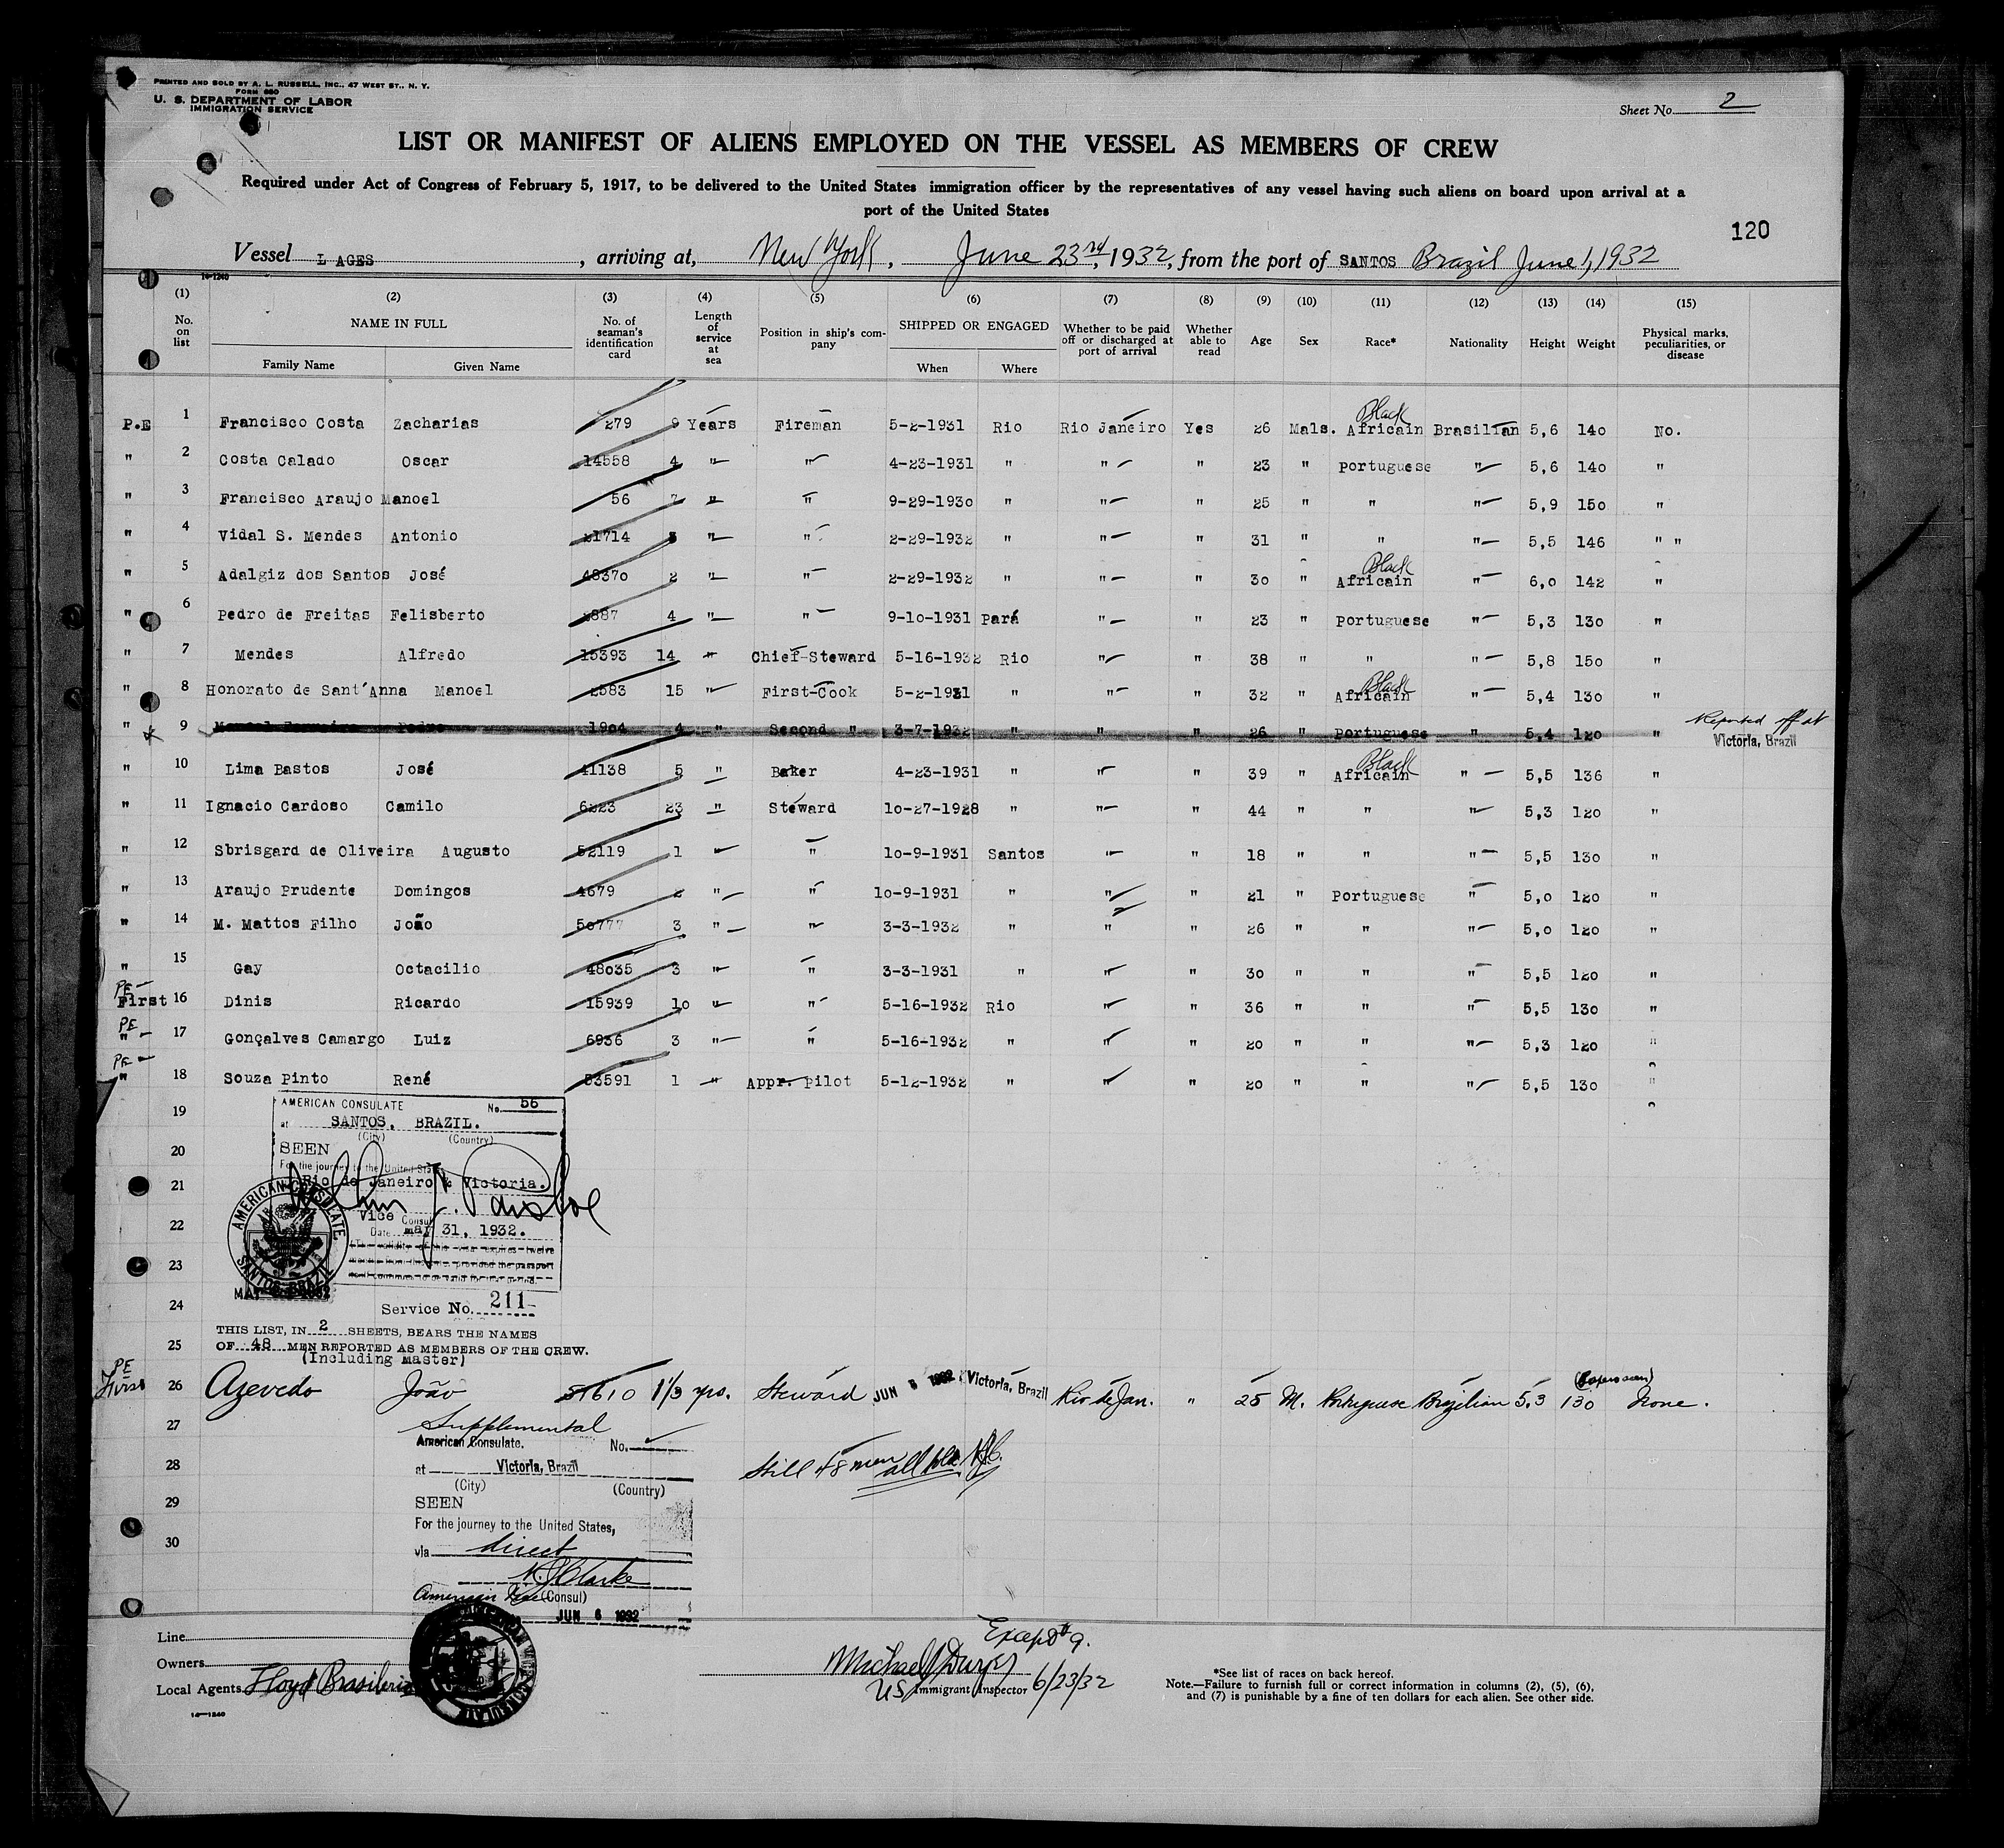 PRINTED AND SOLD BY A. L. RUSSELL, INC., 47 WEST ST., N. Y.
FORM 680
U. S. DEPARTMENT OF LABOR
IMMIGRATION SERVICE
Sheet No. 2
LIST OR MANIFEST OF ALIENS EMPLOYED ON THE VESSEL AS MEMBERS OF CREW
Required under Act of Congress of February 5, 1917, to be delivered to the United States immigration officer by the representatives of any vessel having such aliens on board upon arrival at a
port of the United States
120
Vessel L AGES, arriving at, New York, June 23rd, 1932, from the port of SANTOS Brazil June 1, 1932
14-1240
(1) (2) (3) (4) (5) (6) (7) (8) (9) (10) (11) (12) (13) (14) (15)
No. on list NAME IN FULL Family Name Given Name No. of seaman's identification card Length of service at sea Position in ship's company SHIPPED OR ENGAGED When Where Whether to be paid off or discharged at port of arrival Whether able to read Age Sex Race* Nationality Height Weight Physical marks, peculiarities, or disease
Black
P.E 1 Francisco Costa Zacharias 279 9 Years Fireman 5-2-1931 Rio Rio Janeiro Yes 26 Mals. Africain Brasilian 5,6 140 No.
" 2 Costa Calado Oscar 14558 4 " " 4-23-1931 " " " 23 " Portuguese " 5,6 140 "
" 3 Francisco Araujo Manoel 56 7 " " 9-29-1930 " " " 25 " " " 5,9 150 "
" 4 Vidal S. Mendes Antonio 21714 " " 2-29-1932 " " " 31 " " " 5,5 146 " "
Black
" 5 Adalgiz dos Santos José 48370 2 " " 2-29-1932 " " " 30 " Africain " 6,0 142 "
" 6 Pedro de Freitas Felisberto 2887 4 " " 9-10-1931 Pará " " 23 " Portuguese " 5,3 130 "
" 7 Mendes Alfredo 15393 14 " Chief-Steward 5-16-1932 Rio " " 38 " " " 5,8 150 "
Black
" 8 Honorato de Sant'Anna Manoel 2583 15 " First-Cook 5-2-1931 " " " 32 " Africain " 5,4 130 "
" 9 Pedro 1904 4 " Second " 3-7-1932 " " " 26 " Portuguese " 5,4 120 " Reported off at
Victoria, Brazil
Black
" 10 Lima Bastos José 41138 5 " Baker 4-23-1931 " " " 39 " Africain " 5,5 136 "
" 11 Ignacio Cardoso Camilo 6223 23 " Steward 10-27-1928 " " " 44 " " " 5,3 120 "
" 12 Sbrisgard de Oliveira Augusto 52119 1 " 10-9-1931 Santos " " 18 " " " 5,5 130 "
" 13 Araujo Prudente Domingos 4679 2 " " 10-9-1931 " " " 21 " Portuguese " 5,0 120 "
" 14 M. Mattos Filho João 50777 3 " " 3-3-1932 " " " 26 " " " 5,0 120 "
" 15 Gay Octacilio 48035 3 " " 3-3-1931 " " " 30 " " " 5,5 120 "
PE
First 16 Dinis Ricardo 15939 10 " " 5-16-1932 Rio " " 36 " " " 5,5 130 "
PE
" 17 Gonçalves Camargo Luiz 6936 3 " " 5-16-1932 " " " 20 " " " 5,3 120 "
PE
" 18 Souza Pinto René 53591 1 " Appr. Pilot 5-12-1932 " " " 20 " " " 5,5 130 "
19
AMERICAN CONSULATE No. 56
at SANTOS, BRAZIL.
(City) (Country)
20
SEEN
For the journey to the United States
21
Rio de Janeiro & Victoria.
22
Vice Consul
Date May 31, 1932.
AMERICAN CONSULATE. SANTOS, BRAZIL
23
24
Service No. 211
THIS LIST, IN 2 SHEETS, BEARS THE NAMES
25
OF 48 MEN REPORTED AS MEMBERS OF THE CREW.
(Including master)
PE
First 26 Azevedo João 51610 1 1/3 yrs. Steward JUN 6 1932 Victoria, Brazil Rio de Jan. " 25 M. Portuguese Brazilian 5.3 130 None.
27
Supplemental
American Consulate. No.
28
at Victoria, Brazil
(City) (Country)
Still 48 men all told
29
SEEN
For the journey to the United States,
30
via direct
American Vice (Consul)
JUN 6 1932
Line
Owners
Local Agents Lloyd Brasileiro
14-1240
Except #9.
US Immigrant Inspector 6/23/32
*See list of races on back hereof.
Note.—Failure to furnish full or correct information in columns (2), (5), (6),
and (7) is punishable by a fine of ten dollars for each alien. See other side.